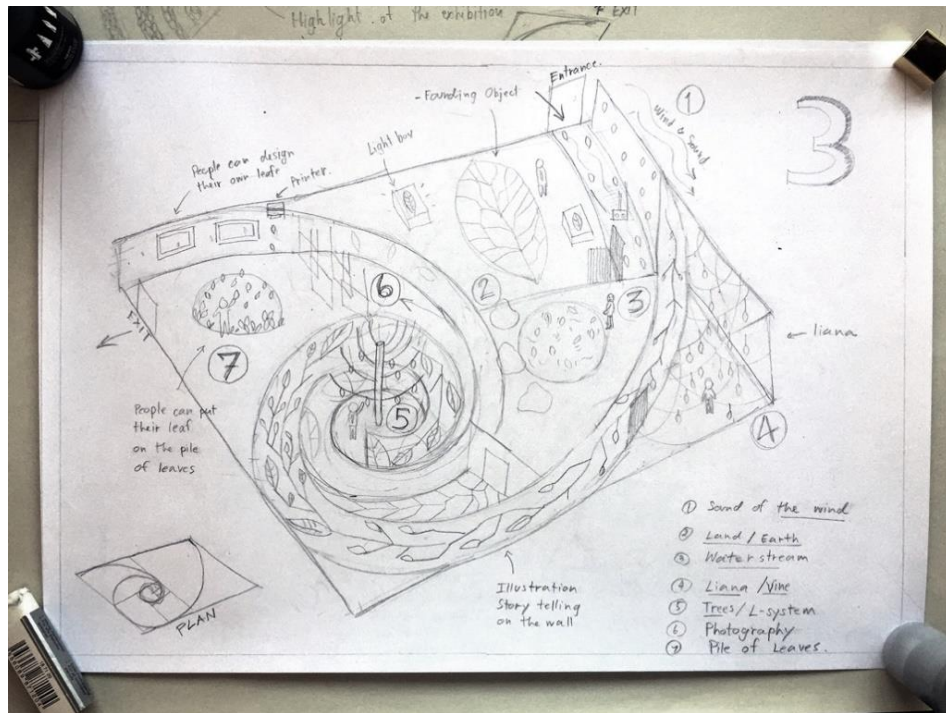 Highlight of the exhibition
EXIT
3
Entrance.
- Founding Object
①
Wind & Sound
Light box
People can design
their own leaf
Printer.
⑥
②
③
← liana
EXIT
⑦
⑤
④
People can put
their leaf
on the pile
of leaves
Illustration
Story telling
on the wall
PLAN
① Sound of the wind
② Land / Earth
③ Water stream
④ Liana / Vine
⑤ Trees / L-system
⑥ Photography
⑦ Pile of Leaves.